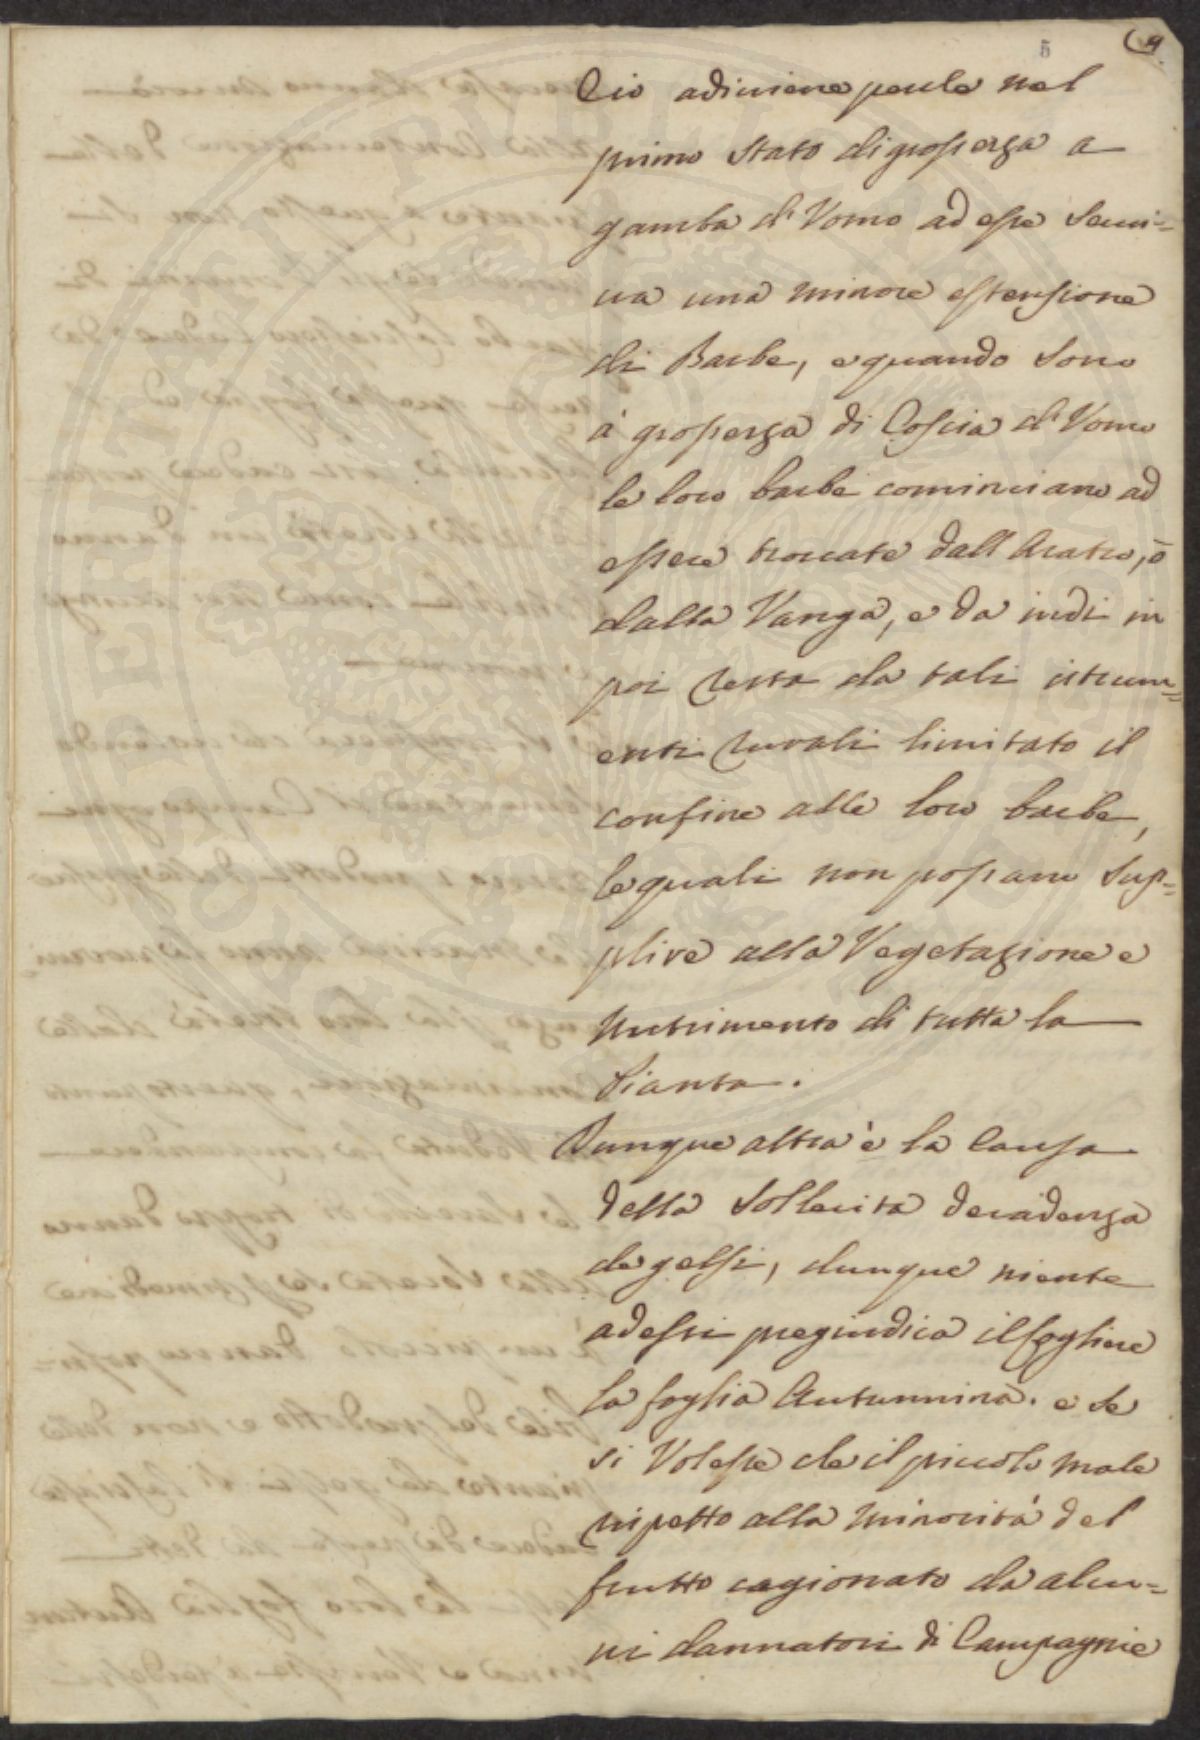 5
9
Cio adiviene perche nel
primo stato di grossezza a
gamba d'Vomo ad esse servi=
va una minore estensione
di Barbe, e quando sono
à grossezza di Coscia d'Vomo
le loro barbe cominciano ad
essere troncate dall'Aratro, ò
dalla Vanga, e da indi in
poi resta da tali istrum=
enti rurali limitato il
confine alle loro barbe,
le quali non possano sup=
plire alla Vegetazione e
nutrimento di tutta la
Pianta.
Dunque altra è la Causa
della sollecita decadenza
de gelsi, dunque niente
ad essi pregiudica il cogliere
la foglia Autunnina. e se
si Volesse che il piccolo male
rispetto alla minorità del
frutto cagionato da alcu=
ni dannatori di Campagnie